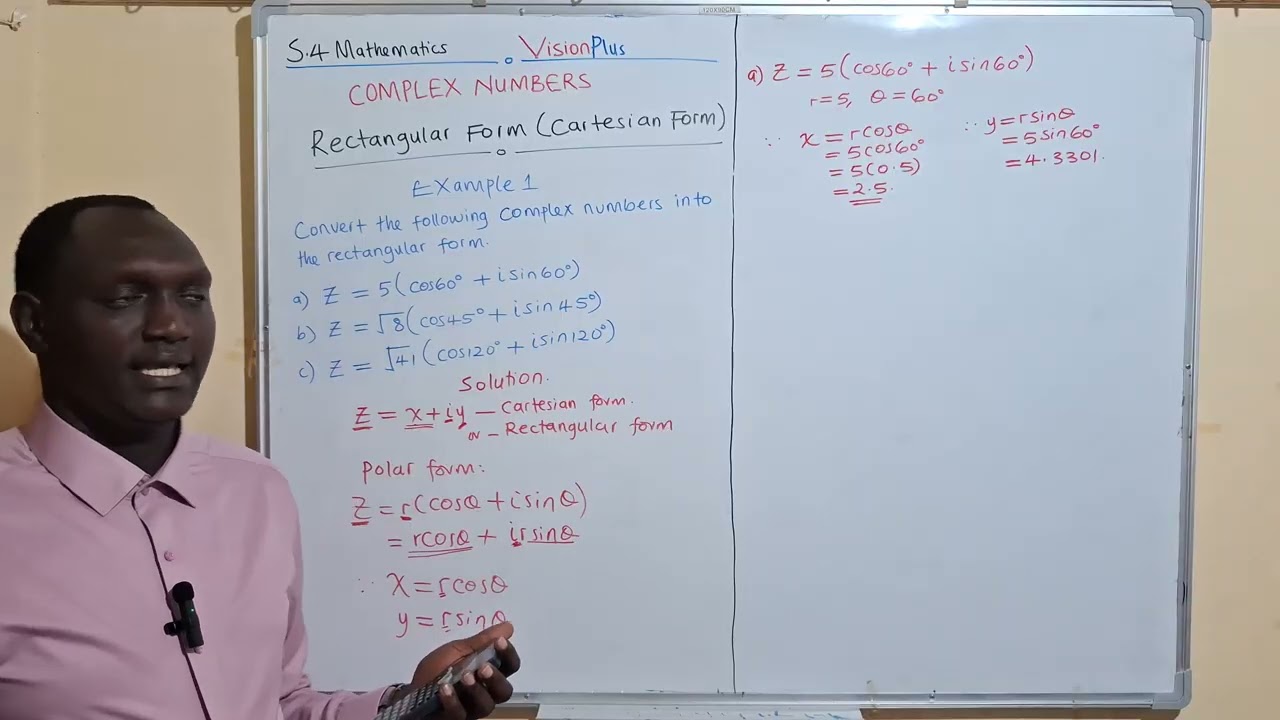 120X90CM
S.4 Mathematics VisionPlus
COMPLEX NUMBERS
Rectangular Form (Cartesian Form)
Example 1
Convert the following complex numbers into
the rectangular form.
a) Z = 5(cos60° + isin60°)
b) Z = √8(cos45° + isin45°)
c) Z = √41(cos120° + isin120°)
Solution.
Z = x + iy — Cartesian form.
or – Rectangular form
Polar form:
Z = r(cosθ + isinθ)
= rcosθ + irsinθ
∴ x = rcosθ
y = rsinθ
a) Z = 5(cos60° + isin60°)
r = 5, θ = 60°
∴ x = rcosθ
= 5cos60°
= 5(0.5)
= 2.5.
∴ y = rsinθ
= 5sin60°
= 4.3301.